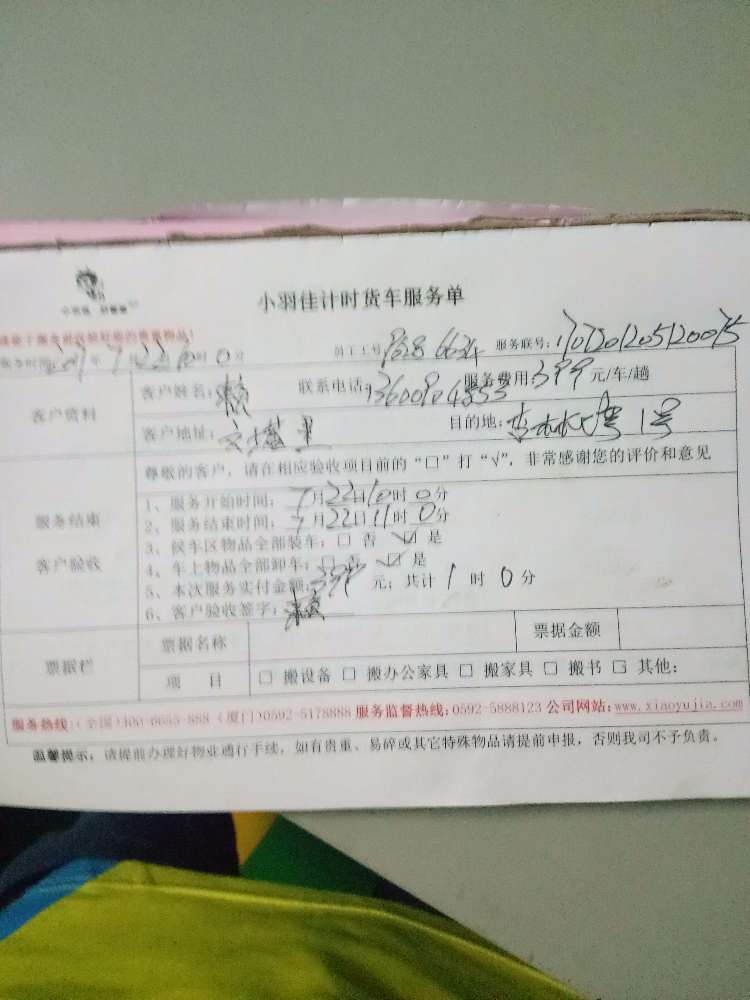 小羽佳计时货车服务单
员工工号 服务联号:
7月22日10时0分
客户资料 客户姓名:赖 联系电话: 服务费用:399元/车/趟
客户地址: 目的地: 1号
尊敬的客户，请在相应验收项目前的“□”打“√”，非常感谢您的评价和意见
服务结束
客户验收
1、服务开始时间:7月22日10时0分
2、服务结束时间:7月22日11时0分
3、候车区物品全部装车:□ 否 ☑ 是
4、车上物品全部卸车:□ 否 ☑ 是
5、本次服务实付金额:399元;共计1时0分
6、客户验收签字:赖
票据栏 票据名称 票据金额
项 目 □ 搬设备 □ 搬办公家具 □ 搬家具 □ 搬书 □ 其他:
服务热线:(全国)400-6655-888 (厦门)0592-5178888 服务监督热线:0592-5888123 公司网站:www.xiaoyujia.com
温馨提示:请提前办理好物业通行手续，如有贵重、易碎或其它特殊物品请提前申报，否则我司不予负责。